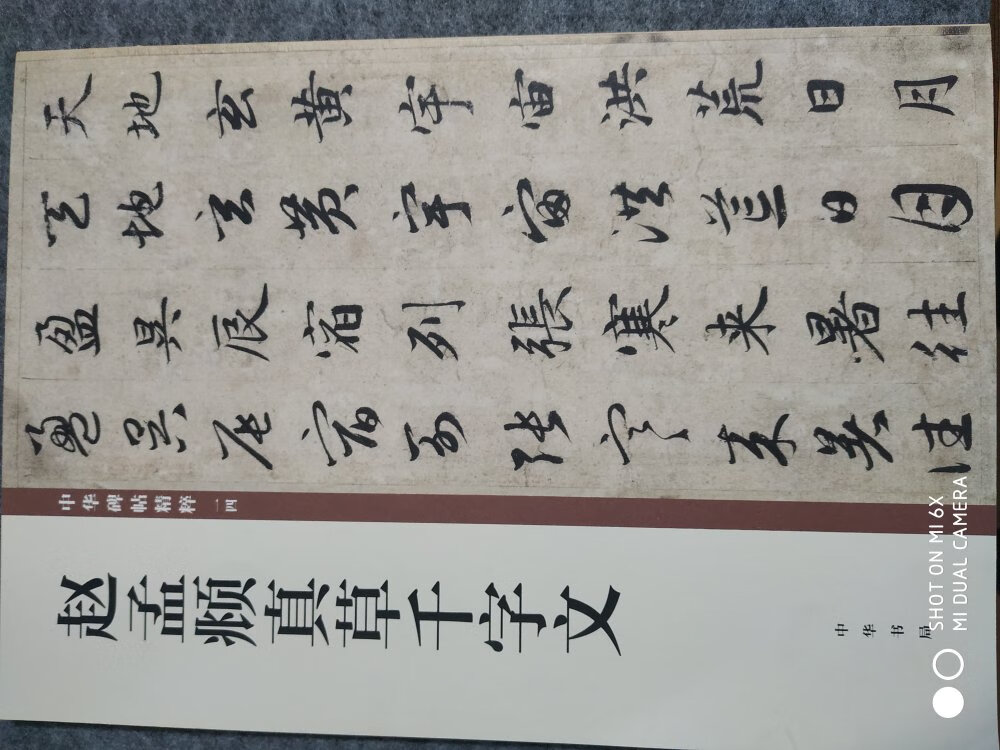 天地玄黃宇宙洪荒日月
天地玄黃宇宙洪荒日月
盈昃辰宿列張寒来暑往
盈昃辰宿列張寒来暑往
中华碑帖精粹 一四
赵孟頫真草千字文
中华书局
SHOT ON MI 6X
MI DUAL CAMERA